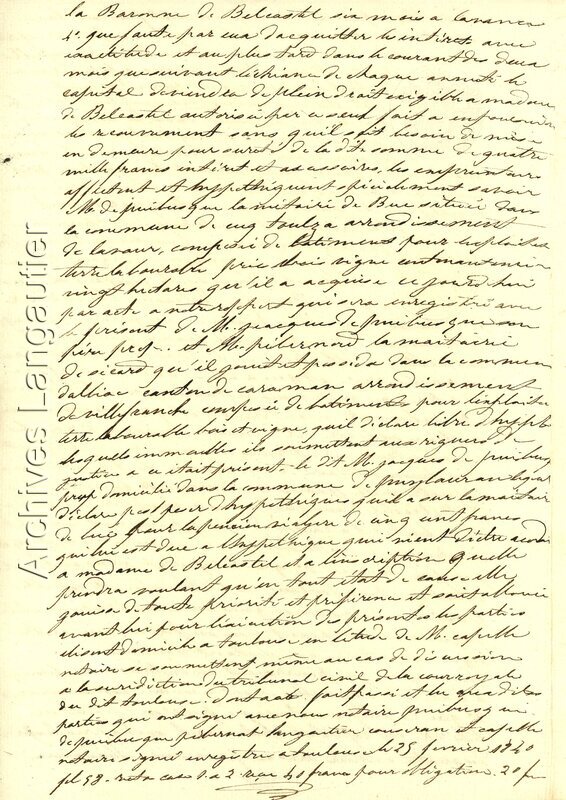 la Baronne de Belcastel six mois a lavance
4°. que faute par eux d'acquitter les interets avec
exactitude et au plus tard dans le courant des deux
mois que suivant lécheance de chaque annuité le
capital deviendra de plein droit exigible a madame
de Belcastel autorisée par ce seul fait a en poursuivre
le recouvrement sans quil soit besoin de mise
en demeure pour sureté de la dite somme de quatre
mille francs interet et accessoires, les emprunteurs
affectent et hypothequent spécialement savoir
M. de puibusque la metairie de Buc située dans
la commune de cuq toulza arrondissement
de lavaur, composée de batiments pour lexploitation
terre labourable prés bois vigne contenant environ
vingt hectares qu'il a acquise ce jourd'hui
par acte a notre rapport qui sera enregistré avec
le présent de M. jacques de puibusque son
père prop. et M. pibernord la maitairie
de sicard qu'il jouit et posséde dans la commune
dalbiac canton de caraman arrondissement
de villefranche composée de batiments pour lexploitation
terre labourable bois et vigne, quil declare libre d'hypoth
lesquels immeubles ils soumettent aux rigueurs de
justice a ce etait présent le dit M. jacques de puibusque
prop domicilié dans la commune de puylaurens lequel
déclare
de buc pour la pension viagere de cinq cent francs
qui lui est due a l'hypothéque qui vient d'être accordée
a madame de Belcastel et a l'inscription quelle
prendra voulant qu'en tout etat de cause elle
jouisse de toute priorité et préférence et soit allouée
avant lui pour lexécution des présentes les parties
elisent domicile a toulouse en létude de M. capelle
notaire se soumettent même au cas de discussion
a la juridiction du tribunal civil de la cour royale
du dit toulouse. dont acte fait passé et lu aux dites
parties qui ont signé avec nous notaire puibusque
de puibusque pibernat langautier et capelle
notaire signé enregistré a toulouse le 25 fevrier 1840
fol 58. recto case 1. a 2 reçu 40 francs pour obligation. 20 f
Archives Langautier